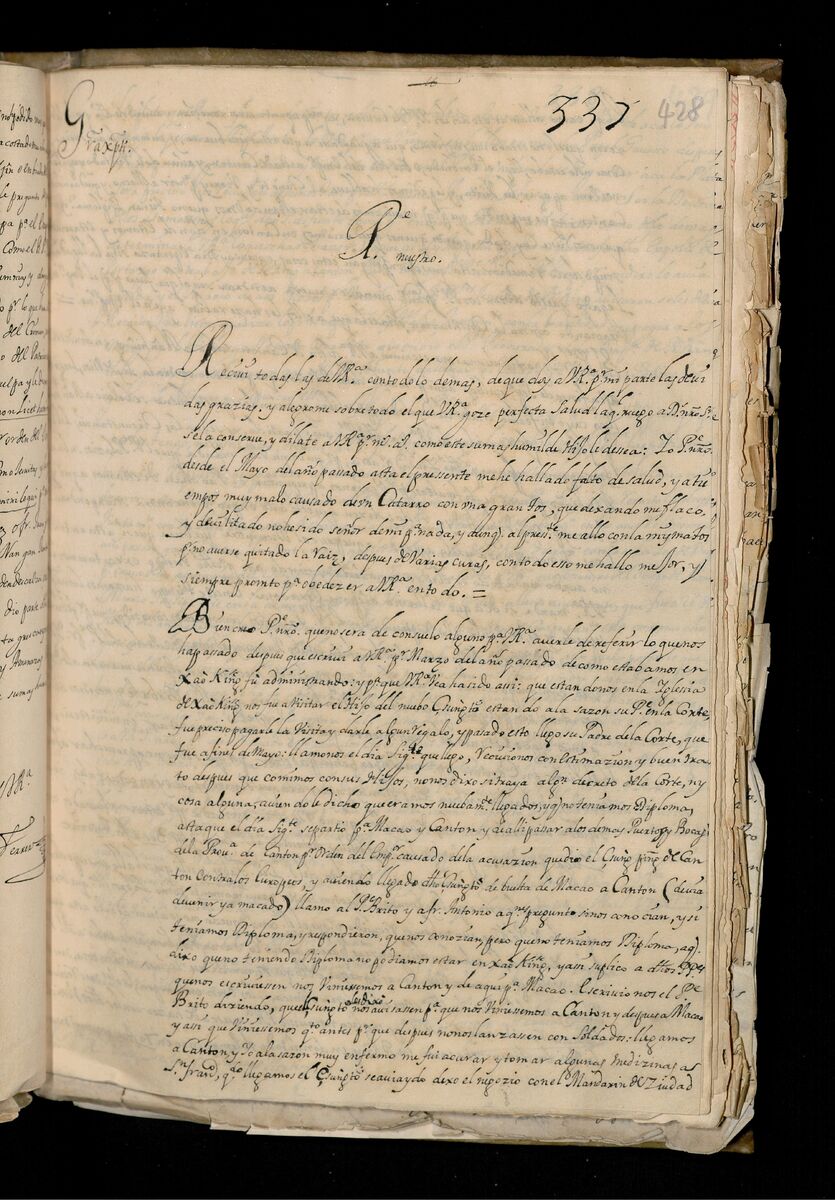 337 428
G
Pe
R. nuestro.
Recivi todas las de V.Rª. con todo lo demas, de que doy a V.Rª. pr. mi parte las devi
das grazias, y alegrome sobre todo el que V.Rª. goze perfecta salud la q. ruego a Ds. nro. Sr.
se la conserve, y dilate a V.Rª. pr. ms. as. como este su mas humilde Hijo le desea: Yo Pe. nro.
desde el Mayo del año passado asta el pressente me he hallado falto de salud, y a ti
empos muy malo causado de vn Catarro con vna gran tos, que dexandome flaco,
y devilitado no he sido señor de mi pª. nada, y aunq. al pres.te me allo con la misma tos
pr. no averse quitado la raiz, despues de varias curas, con todo esso me hallo mejor, y
siempre promto pª. obedezer a V.Rª. en todo. =
Bien creo Pe. nro. que no sera de consuelo alguno pª. V.Rª. averle de referir lo que nos
ha passado despues que escrivi a V.Rª. pr. Marzo del año passado de como estabamos en
Xao King fu administrando: y pª. que V.Rª. vea ha sido assi: que estandonos en la Iglesia
de Xao King nos fue a visitar el Hijo del nuebo Çungto estando a la sazon su Pe. en la Corte,
fue preciso pagarle la visita, y darle algun regalo, y passado esto llego su Padre de la Corte, que
fue a fines de Mayo: llamonos el dia Sig.te que llego, y recivionos con estimazion y buen tra
to despues que comimos con sus Hijos, no nos dixo si traya algn. decreto de la Corte, ny
cosa alguna, aviendole dicho que eramos nuebam.te llegados, y q. no teniamos Diploma,
asta que el dia Sig.te se partio pª. Macao y Canton y de alli passar a los demas Puertos y Bocas
de la Provª. de Canton pr. orden del Empr. causado de la acusazion que dio el de Can
ton contra los Europeos, y aviendo llegado dho Çungto de buelta de Macao a Canton (devia
de venir ya macado) llamo al Pe. Brito y a fr. Antonio a qnes. pregunto si nos conocian, y si
teniamos Diploma, y respondieron, que nos conozian, pero que no teniamos Diploma, aq.
dixo que no teniendo Diploma no podiamos estar en Xao King, y assi suplico a dhos PPes
que nos escriviessen nos viniessemos a Canton y de aqui pª. Macao. Escrivionos el Pe.
Brito diziendo, que el Çungto les dixo nos avisassen pª. que nos viniessemos a Canton y despues a Macao
y assi que viniessemos qto. antes pr. que despues no nos lanzassen con soldados: llegamos
a Canton y yo a la sazon muy enfermo me fui a curar y tomar algunas medizinas a
Sn. franco, qdo. llegamos el Çungto se avia ydo dexo el negozio con el Mandarin de Ziudad